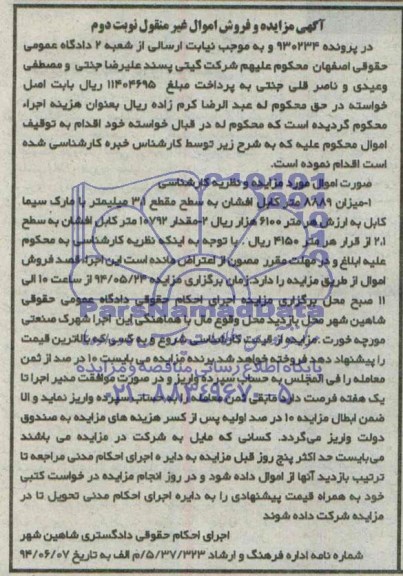 آگهی مزایده و فروش اموال غیر منقول نوبت دوم
در پرونده ۹۳۰۲۳۴ و به موجب نیابت ارسالی از شعبه ۲ دادگاه عمومی
حقوقی اصفهان محکوم علیهم شرکت گیتی پسند علیرضا جنتی و مصطفی
وعیدی و ناصر قلی جنتی به پرداخت مبلغ ۱۱۴۰۴۶۹۵ ریال بابت اصل
خواسته در حق محکوم له عبد الرضا کرم زاده ریال بعنوان هزینه اجراء
محکوم گردیده است که محکوم له در قبال خواسته خود اقدام به توقیف
اموال محکوم علیه که به شرح زیر توسط کارشناس خبره کارشناسی شده
است اقدام نموده است.
صورت اموال مورد مزایده و نظریه کارشناسی
۱-میزان ۸۶۸۹ متر کابل افشان به سطح مقطع ۳.۱ میلیمتر با مارک سیما
کابل به ارزش هر متر ۶۱۰۰ هزار ریال ۲-مقدار ۱۰۷۹۲ متر کابل افشان به سطح
۲.۱ از قرار هر متر ۴۱۵۰ ریال . با توجه به اینکه نظریه کارشناسی به محکوم
علیه ابلاغ و در مهلت مقرر مصون از اعتراض مانده است این اجرا قصد فروش
اموال از طریق مزایده را دارد. زمان برگزاری مزایده ۹۴/۰۵/۲۴ از ساعت ۱۰ الی
۱۱ صبح محل برگزاری مزایده اجرای احکام حقوقی دادگاه عمومی حقوقی
شاهین شهر محل بازدید محل وقوع مال با هماهنگی این اجرا شهرک صنعتی
مورچه خورت .مزایده از قیمت کارشناسی شروع و به کسی که بالاترین قیمت
را پیشنهاد دهد فروخته خواهد شد برنده مزایده می بایست ۱۰ در صد از ثمن
معامله را فی المجلس به حساب سپرده واریز و در صورت موافقت مدیر اجرا تا
یک هفته فرصت دارد مابقی ثمن معامله را به حساب سپرده واریز نماید و الا
ضمن ابطال مزایده ۱۰ در صد اولیه پس از کسر هزینه های مزایده به صندوق
دولت واریز می‌گردد. کسانی که مایل به شرکت در مزایده می باشند
می‌بایست حد اکثر پنج روز قبل مزایده به دایر ه اجرای احکام مدنی مراجعه تا
ترتیب بازدید آنها از اموال داده شود و در روز انجام مزایده در خواست کتبی
خود به همراه قیمت پیشنهادی را به دایره اجرای احکام مدنی تحویل تا در
مزایده شرکت داده شوند
اجرای احکام حقوقی دادگستری شاهین شهر
شماره نامه اداره فرهنگ و ارشاد ۵/۳۷/۳۲۳/م الف به تاریخ ۹۴/۰۶/۰۷
ParsNamadData
پایگاه اطلاع رسانی مناقصه و مزایده
۰۲۱-۸۸۳۴۹۶۷۰-۵